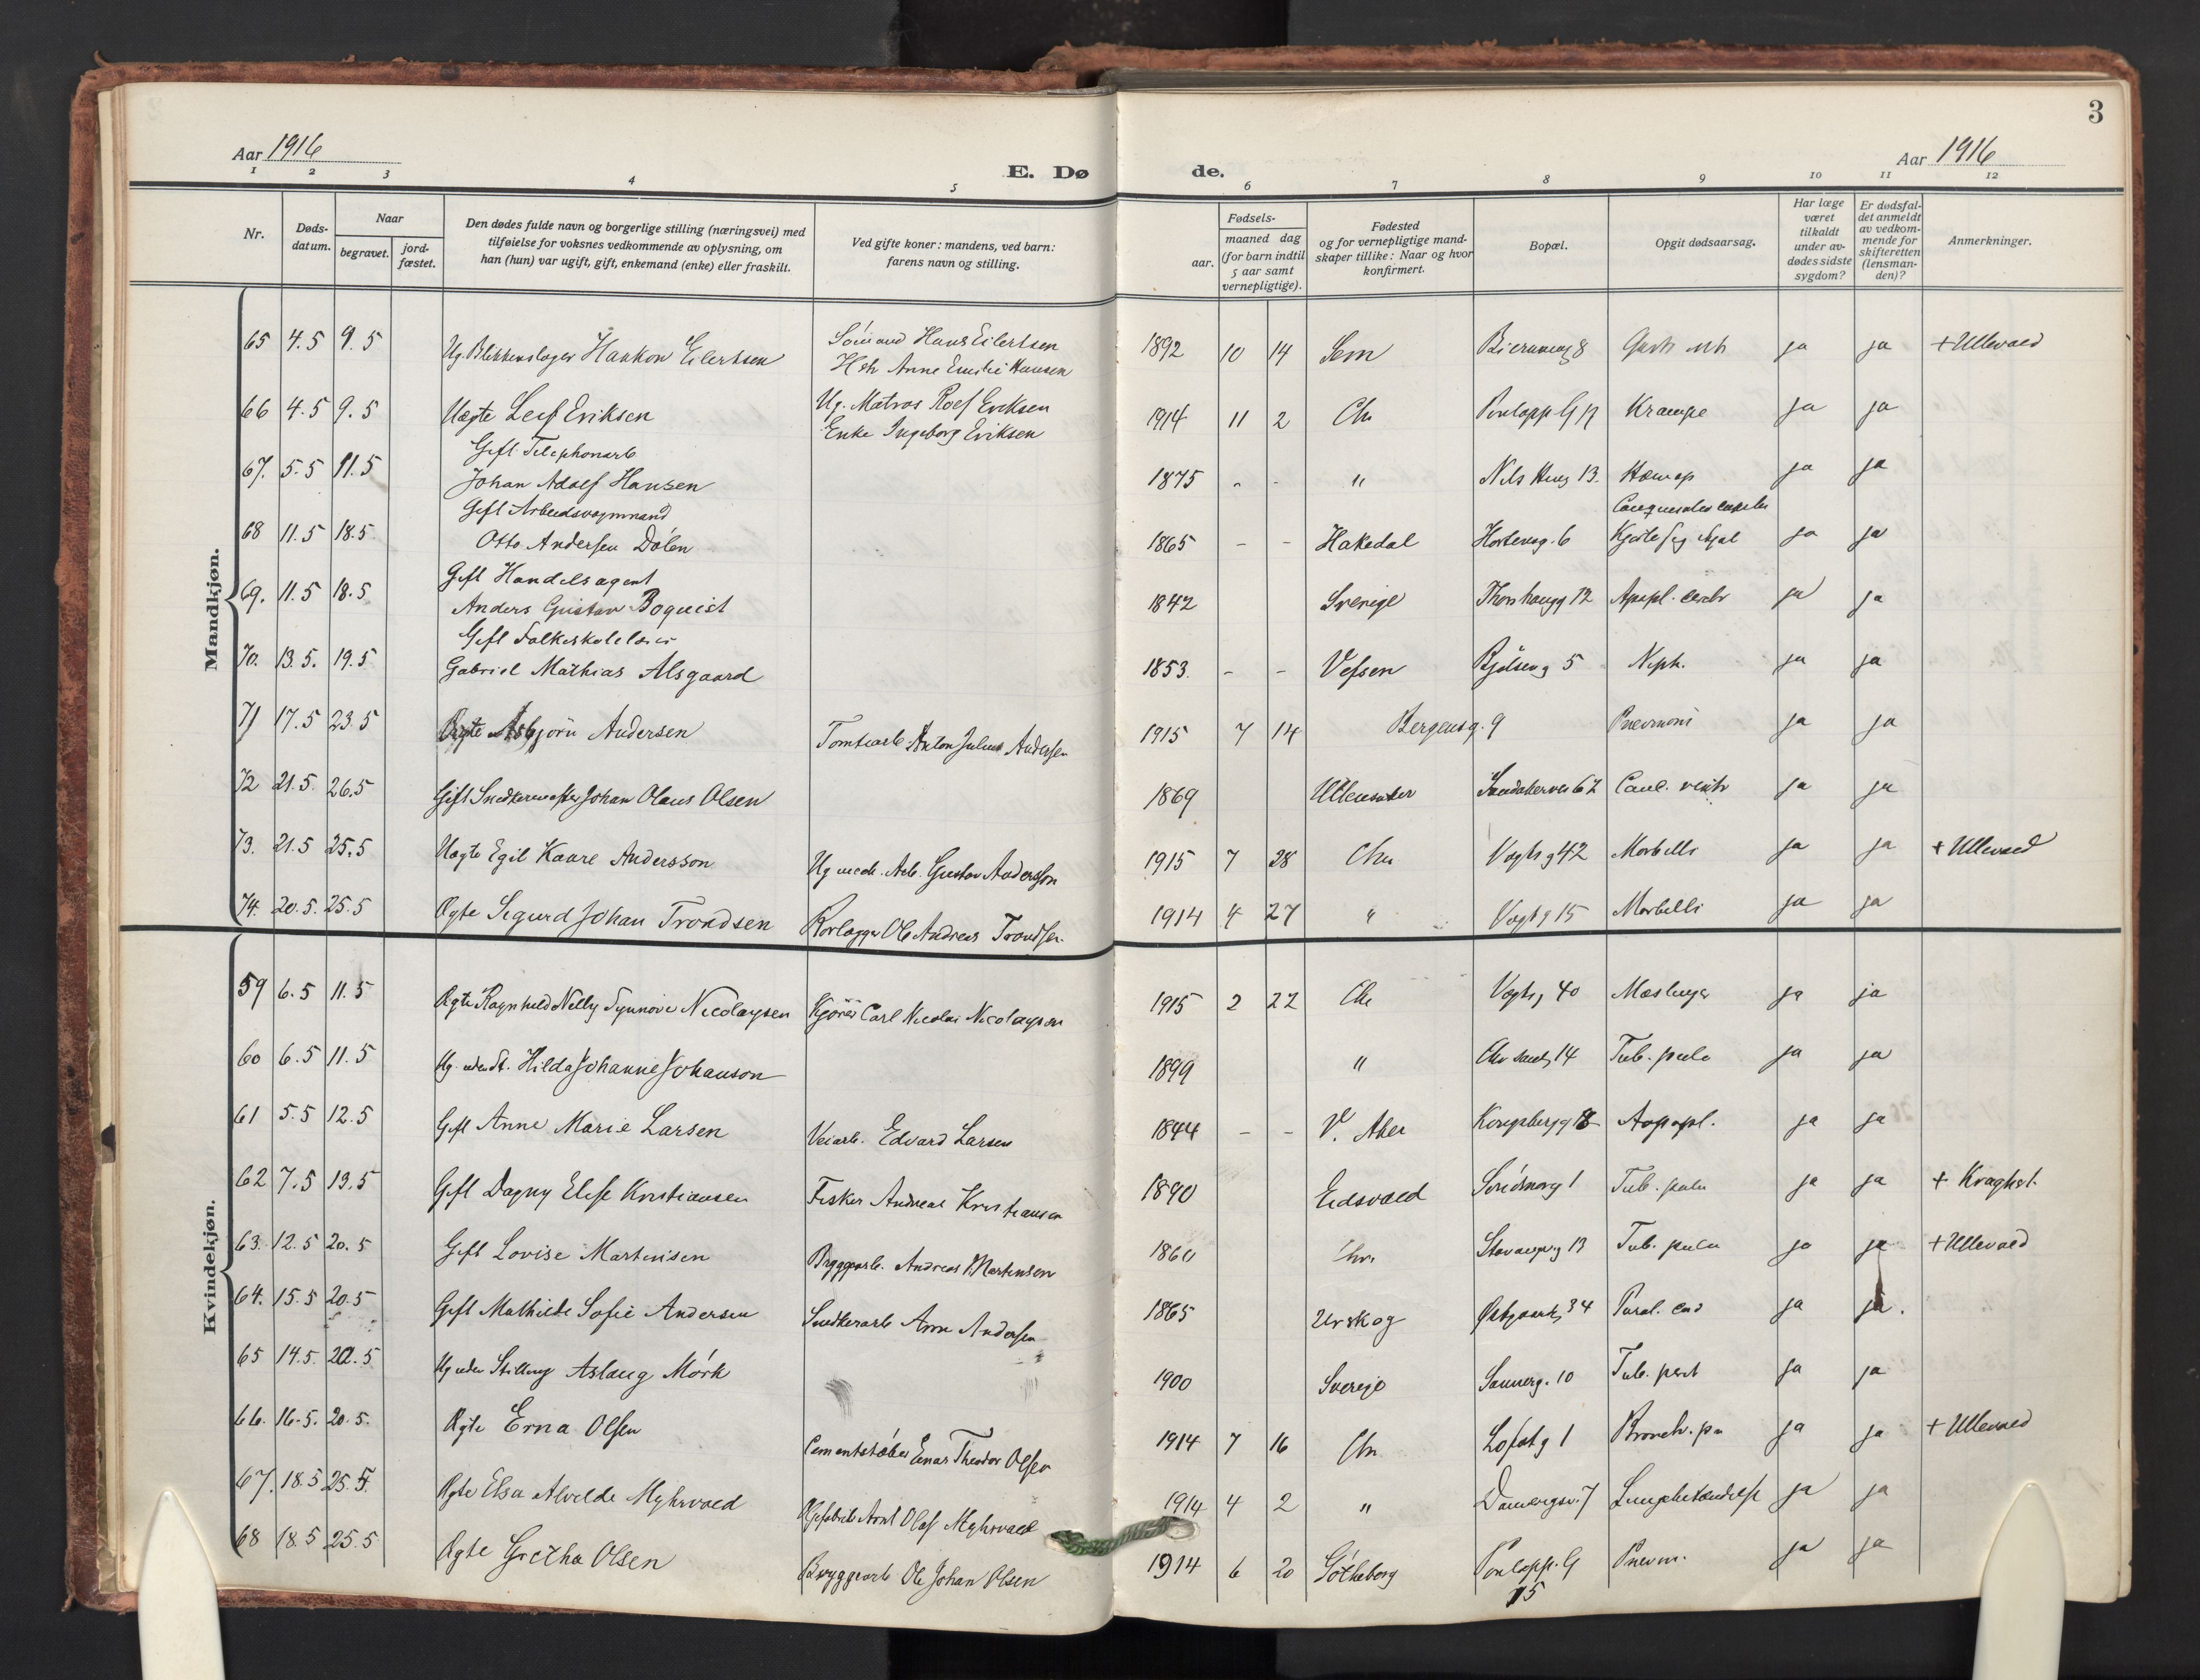 3
Aar 1916
E. Dø de.
Aar 1916
1 2 3 4 5 6 7 8 9 10 11 12
Nr.
Døds-
datum.
Naar
begravet.
jord-
fæstet.
Den dødes fulde navn og borgerlige stilling (næringsvei) med
tilføielse for voksnes vedkommende av oplysning, om
han (hun) var ugift, gift, enkemand (enke) eller fraskilt.
Ved gifte koner: mandens, ved barn:
farens navn og stilling.
Fødsels-
aar.
maaned dag
(for barn indtil
5 aar samt
vernepligtige).
Fødested
og for vernepligtige mand-
skaper tillike: Naar og hvor
konfirmert.
Bopæl.
Opgit dødsaarsag.
Har læge
været
tilkaldt
under av-
dødes sidste
sygdom?
Er dødsfal-
det anmeldt
av vedkom-
mende for
skifteretten
(lensman-
den)?
Anmerkninger.
Mandkjøn.
65 4.5 9.5 Ug. Blikkenslager Haakon Eilertsen
Sömand Hans Eilertsen
Anne Emilie Hansen
1892 10 14 Sem ja ja + Ullevaal
66 4.5 9.5 Uægte Leif Eriksen
Ug. Matros Rolf Eriksen
Enke Ingeborg Eriksen
1914 11 2 Chr Krampe ja ja
67. 5.5 11.5 Gift Telephonarb
Johan Adolf Hansen
1875 - - " Nils Hug 13. ja ja
68 11.5 18.5 Gift Arbeidsvognmand
Otto Andersen Dölen
1865 - - Hakedal Hortensg. 6 ja ja
69. 11.5 18.5 Gift Handelsagent
Anders Gustav Boquist
1842 Sverige Thorshaugg 12 Apopl. cerebr ja ja
70. 13.5. 19.5 Gift Folkeskolelærer
Gabriel Mathias Alsgaard
1853. - - Vefsen Bjölseng 5 Neph. ja ja
71 17.5 23.5 Ægte Asbjörn Andersen
Tomtearb. Anton Julius Andersen
1915 7 14 Bergensg. 9 Pnevmoni ja ja
72 21.5. 26.5 Gift Snedkermester Johan Olaus Olsen
1869 Ullensaker Sandakerven 62 Canc. ventr ja ja
73. 21.5 25.5 Uægte Egil Kaare Andersson
Ug mek. Arb. Gustav Andersson
1915 7 28 Chr Vogtsg 42 Morbilli ja ja + Ullevaal
74. 20.5. 25.5 Ægte Sigurd Johan Trondsen
Rörlægger Ole Andreas Trondsen
1914 4 27 " Vogtsg 15 Morbilli ja ja
Kvindekjøn.
59 6.5 11.5 Ægte Ragnhild Nelly Synnöve Nicolaysen
Kjörer Carl Nicolai Nicolaysen
1915 2 22 Chr Vogtsg 40 Mæslinger ja ja
60 6.5 11.5 Ug. uden St. Hilda Johanne Johanson
1899 " 14 Tub. pulm ja ja
61 5.5 12.5 Gift Anne Marie Larsen
Veiarb. Edvard Larsen
1844 - - V. Aker Kongsbergg 18 Apopl. ja ja
62 7.5 13.5 Gift Dagny Elise Kristiansen
Fisker Andreas Kristiansen
1890 Eidsvold Söndmörg 1 Tub. pulm ja ja + Kraghst.
63. 12.5 20.5 Gift Lovise Martinsen
Bryggearb. Andreas Martinsen
1860 Chr. Stavangerg 13 Tub. pulm ja ja + Ullevaal
64. 15.5 20.5 Gift Mathilde Sofie Andersen
Snedkerarb Arne Andersen
1865 Urskog Östgaardsg 34 Paral. cord ja ja.
65 14.5. 20.5 Ug uden Stilling Aslaug Mörk
1900 Sverige Sannerg. 10 Tub. perit ja ja
66. 16.5. 20.5. Ægte Erna Olsen
Cementstøber Einar Theodor Olsen
1914 7 16 Chr Lofotg 1 Bronch. pn ja ja + Ullevaal
67. 18.5 25.5. Ægte Elsa Alvilde Myhrvold
Olaf Myhrvold
1914 4 2 " 7 Lungebetændelse ja ja
68 18.5 25.5 Ægte Gretha Olsen
Bryggearb Ole Johan Olsen
1914 6 20 Götheborg Pnevm. ja ja
15